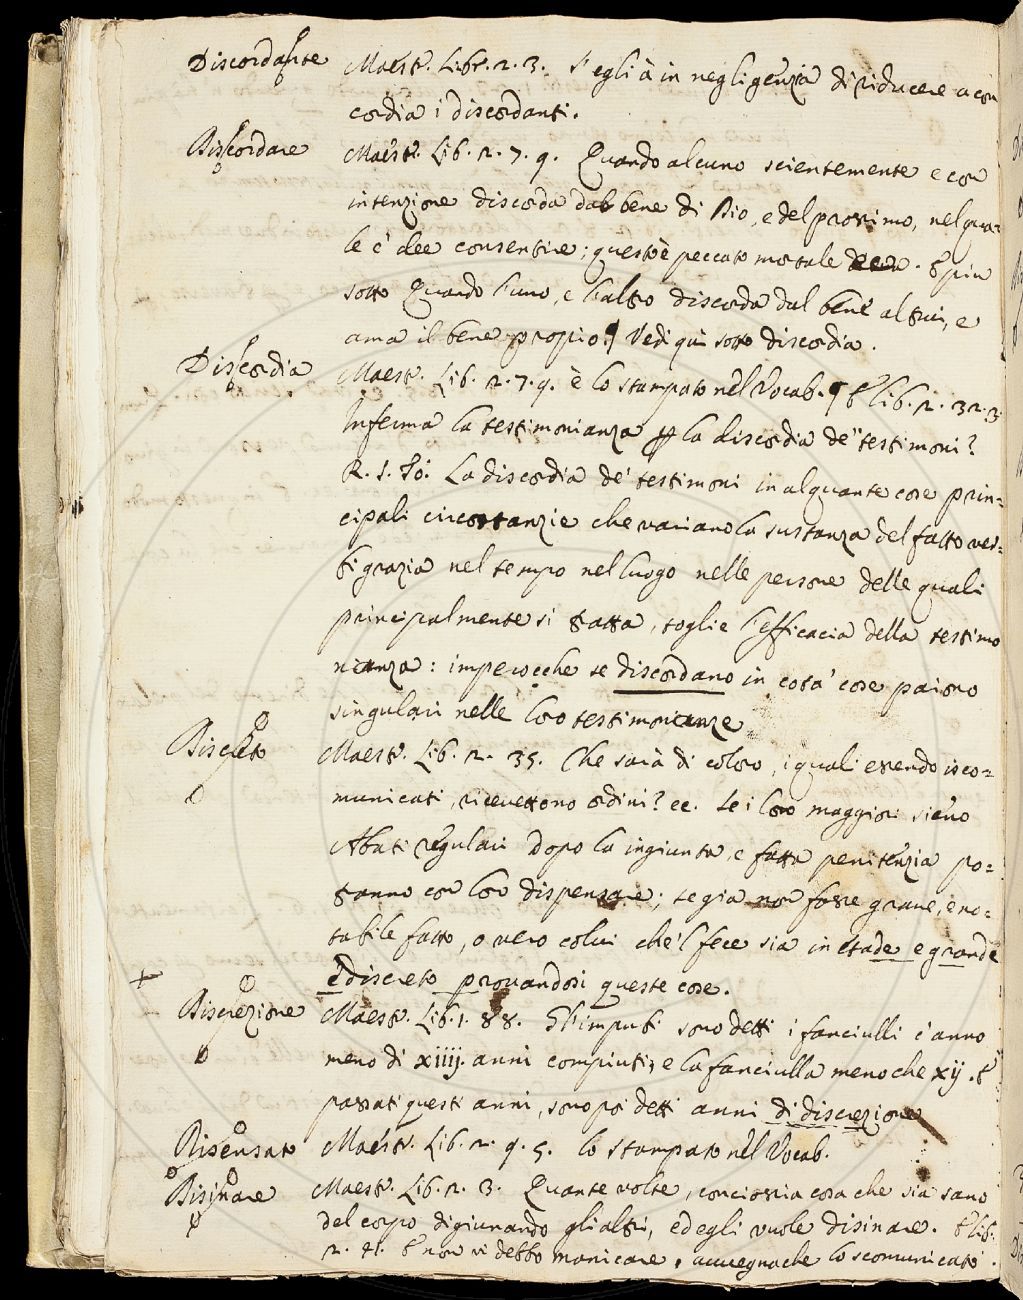 Discordante Maestr. Libr. 2. 3. S'egli à in negligenzia di riducere a con
cordia i discordanti.
Discordare Maestr. Lib. 2. 7. 9. Quando alcuno scientemente e con
intenzione discorda dal bene di Dio, e del prossimo, nel qua-
le e' dee consentire; questo è peccato mortale. E piu
sotto Quando l'uno, e l'altro discorda dal bene altrui, e
ama il bene propio. Vedi qui sotto discordia.
Discordia Maestr. Lib. 2. 7. 9. è lo stampato nel Vocab. E lib. 2. 32. 3.
Inferma la testimonianza la discordia de' testimoni?
R. S. Tò. La discordia de' testimoni in alquante cose prin-
cipali circostanzie che variano la sustanza del fatto ver-
bigrazia nel tempo nel luogo nelle persone delle quali
principalmente si tratta, toglie l'efficacia della testimo
nianza: imperocche se discordano in cota' cose paiono
singulari nelle loro testimonianze
Discreto Maestr. Lib. 2. 35. Che sarà di coloro, i quali essendo isco-
municati, ricevettono ordini? ec. Se i loro maggiori sieno
Abati regulari dopo la ingiunta, e fatta penitenzia po-
tranno con loro dispensare; se gia non fosse grave, e no-
tabile fatto, o vero colui che 'l fece sia in etade e grande
e discreto provandosi queste cose.
Discrezione Maestr. Lib. 1. 88. Gl'impubi sono detti i fanciulli c'anno
meno di xiiij. anni compiuti; e la fanciulla meno che xij. E
passati questi anni, sono poi detti anni di discrezione
Disensato Maestr. Lib. 2. 9. 5. lo stampato nel Vocab.
Disinare Maestr. Lib. 2. 3. Quante volte, conciossia cosa che sia sano
del corpo digiunando gli altri, ed egli vuole disinare. E lib.
2. 41. E non vi debbo manicare, avvegnache lo scomunicato